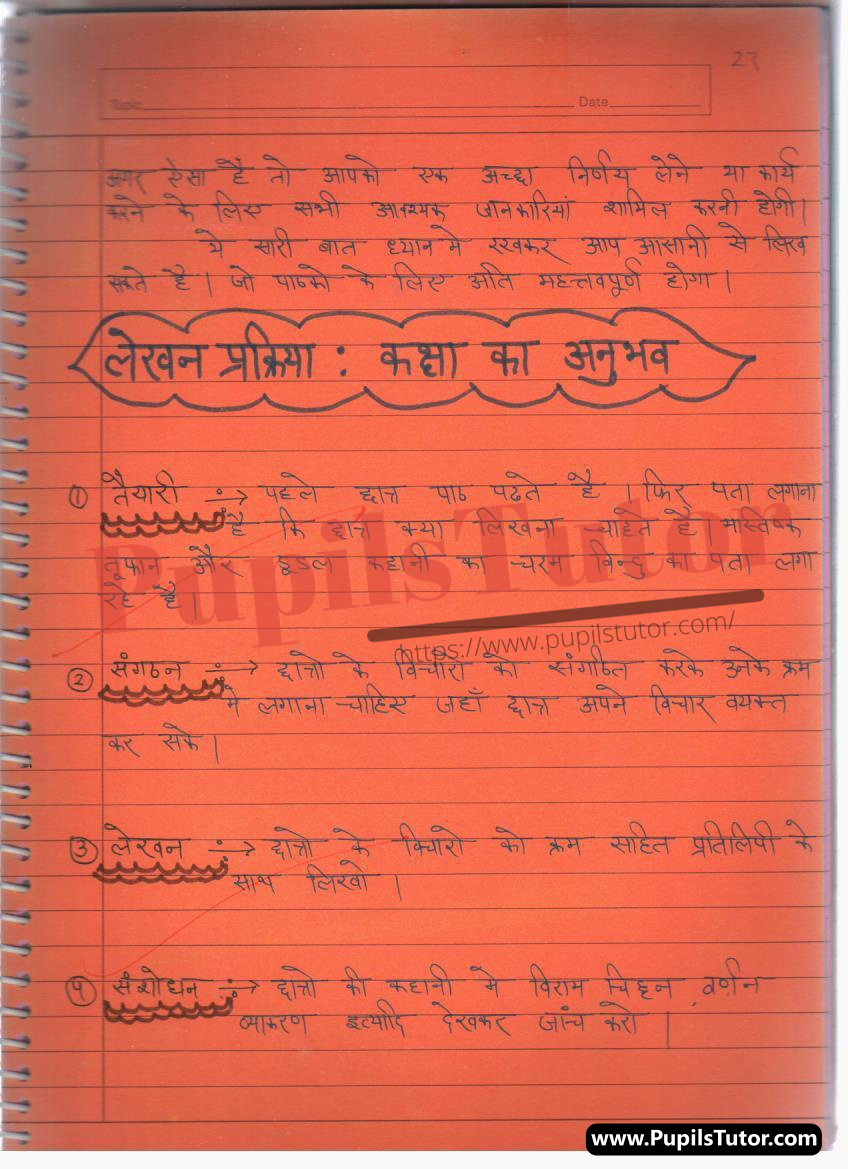 27
Topic Date
अगर ऐसा है तो आपको एक अच्छा निर्णय लेने या कार्य
करने के लिए सभी आवश्यक जानकारियां शामिल करनी होगी।
ये सारी बात ध्यान मे रखकर आप आसानी से लिख
सकते है। जो पाठको के लिए अति महत्तवपूर्ण होगा।
लेखन प्रक्रिया : कक्षा का अनुभव
① तैयारी ÷→ पहले छात्र पाठ पढते है। फिर पता लगाना
है कि छात्र क्या लिखना चाहते है। मस्तिष्क
तूफान और डूडल कहानी का चरम बिन्दु का पता लगा
रहे है।
PupilsTutor
https://www.pupilstutor.com/
② संगठन ÷→ छात्रो के विचारो को संगठित करके उनके क्रम
मे लगाना चाहिए जहाँ छात्र अपने विचार वयक्त
कर सके।
③ लेखन ÷→ छात्रो के विचारो को क्रम सहित प्रतिलिपी के
साथ लिखो।
④ संशोधन ÷→ छात्रो की कहानी मे विराम चिह्न, वर्णन
व्याकरण इत्यादि देखकर जांच करो।
www.PupilsTutor.com